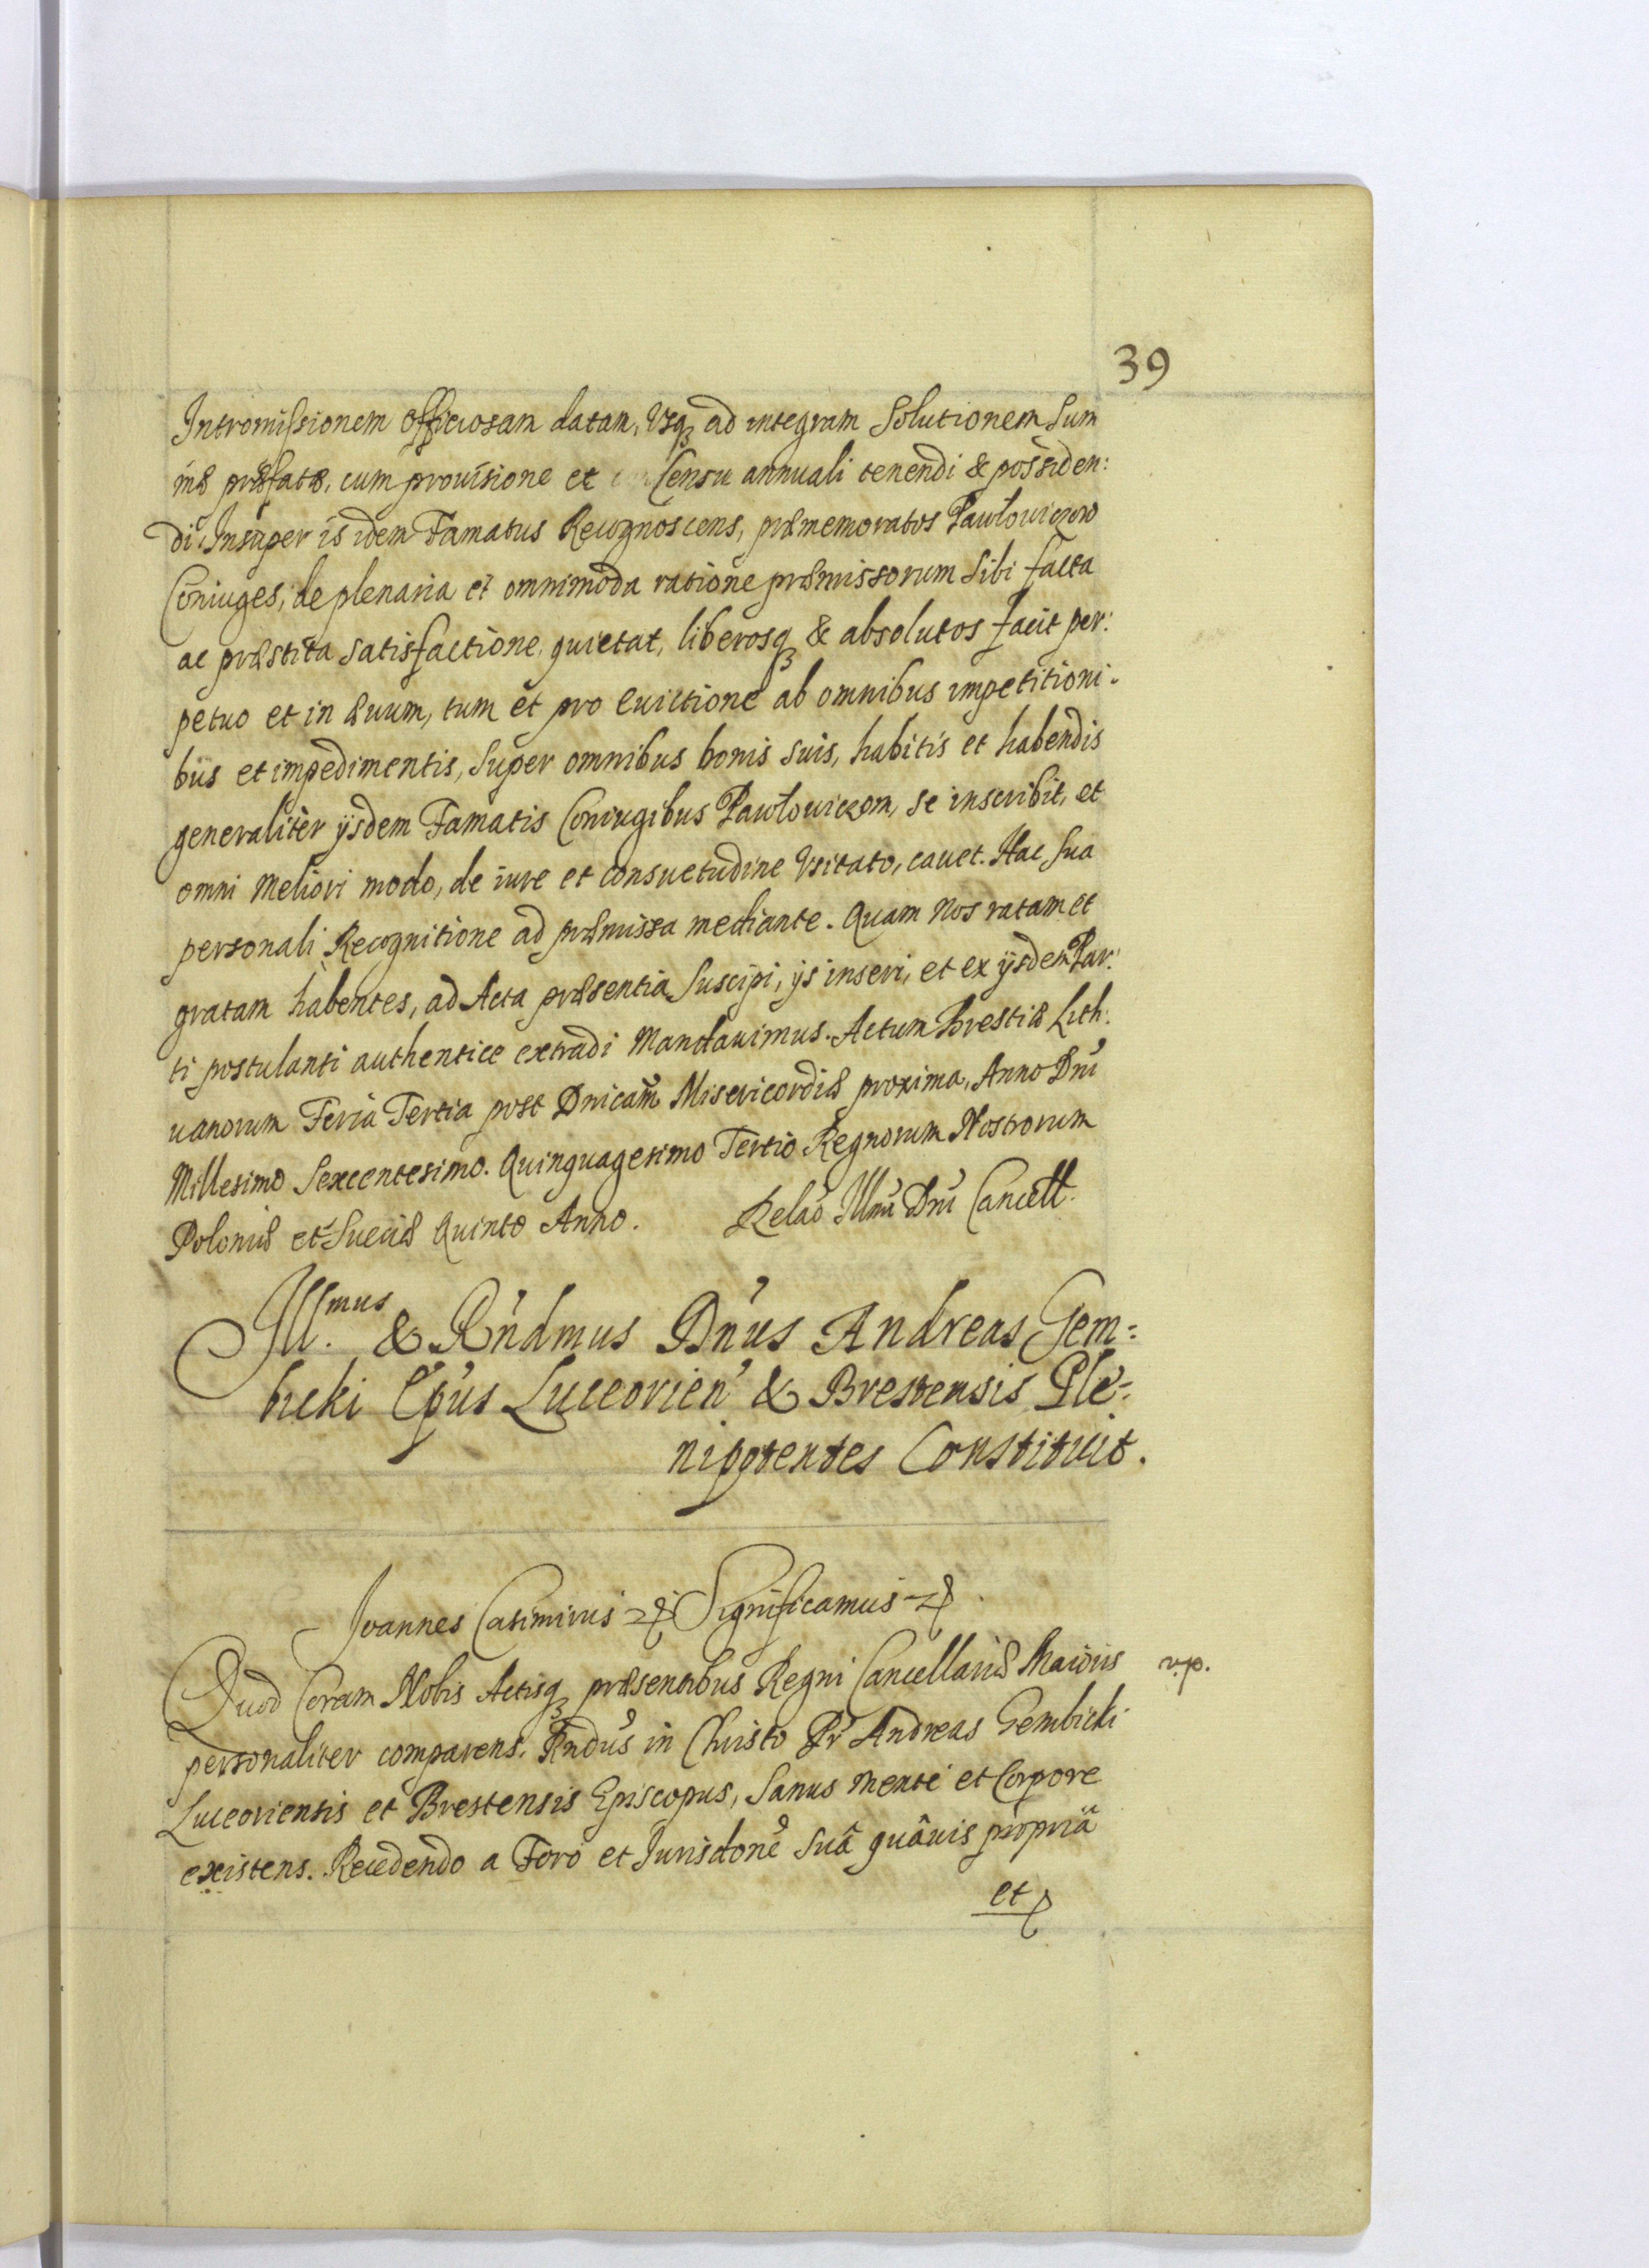 39
Intromissionem officiosam datam, Usq₃ ad integram Solutionem Sum
mæ præfatæ, cum prouisione et Censu annuali tenendi & possiden:
di. Insuper is idem Famatus Recognoscens, præmemoratos Pawłowiczow
Coniuges, de plenaria et omnimoda ratione præmissorum Sibi facta
ac præstita satisfactione, quietat, liberosq₃ & absolutos facit per:
petuo et in æuum, tum et pro euictione ab omnibus impetitioni-
bus et impedimentis, Super omnibus bonis suis, habitis et habendis
generaliter ijsdem Famatis Coniugibus Pawłowiczom, se inscribit, et
omni Meliori modo, de iure et consuetudine Usitato, cauet. Hac Sua
personali Recognitione ad præmissa mediante. Quam Nos ratam et
gratam habentes, ad Acta præsentia Suscipi, ijs inseri, et ex ijsdem Par:
ti postulanti authentice extradi Mandauimus. Actum Brestiæ Lith:
uanorum Feria Tertia post Dnicam Misericordiæ proxima, Anno Dni
Millesimo Sexcentesimo. Quinquagesimo Tertio Regnorum Nostrorum
Poloniæ et Sueciæ Quinto Anno. Relao Illmi Dni Cancell.
Ill.mus & Rndmus Dnus Andreas Gem=
bicki Epus Luceorien & Brestensis Ple=
nipotentes Constituit.
Joannes Casimirus Significamus
Quod Coram Nobis Actisq₃ præsentibus Regni Cancellariæ Maioris
v.p.
personaliter comparens. Rndus in Christo Pr Andreas Gembicki
Luceoriensis et Brestensis Episcopus, Sanus mente et Corpore
existens. Recedendo a Foro et Jurisdone Suâ quâuis propriâ
et